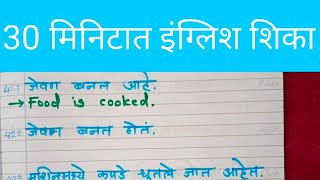 30 मिनिटात इंग्लिश शिका
जेवण बनत आहे.
→ Food is cooked.
422 जेवण बनत होतं.
423 मशिनमध्ये कपडे धुतले जात आहेत.